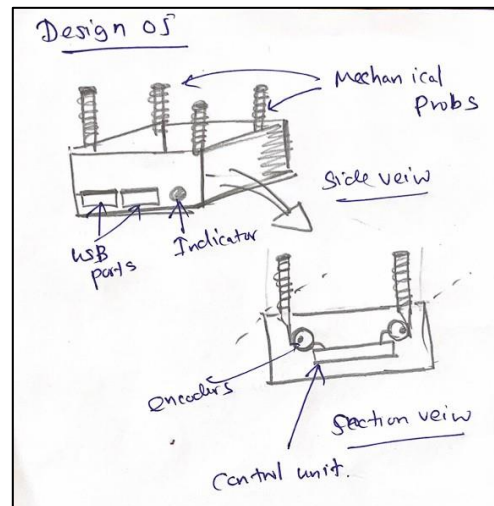 Design 05
Mechanical
Probs
Side veiw
USB
ports
Indicator
encoders
Section veiw
Control unit.